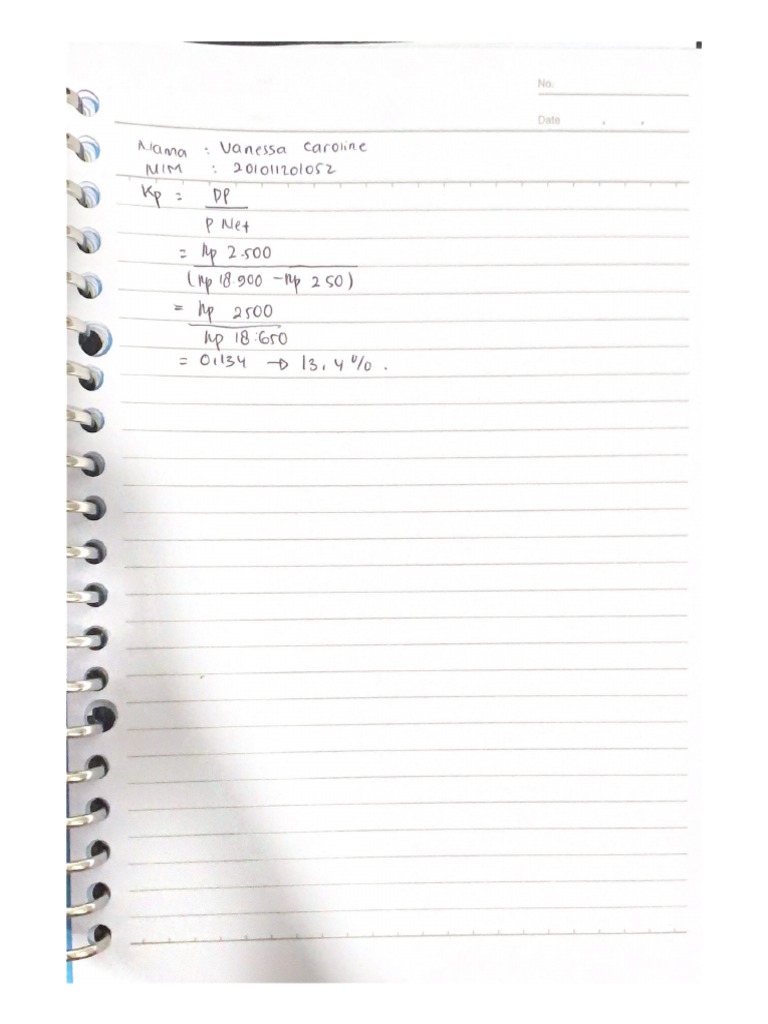 No.
Date
Nama : Vanessa Caroline
NIM : 201011201052
Kp = DP
P Net
= Rp 2.500
(Rp 18.900 - Rp 250)
= Rp 2500
Rp 18.650
= 0,134 → 13,4 %.